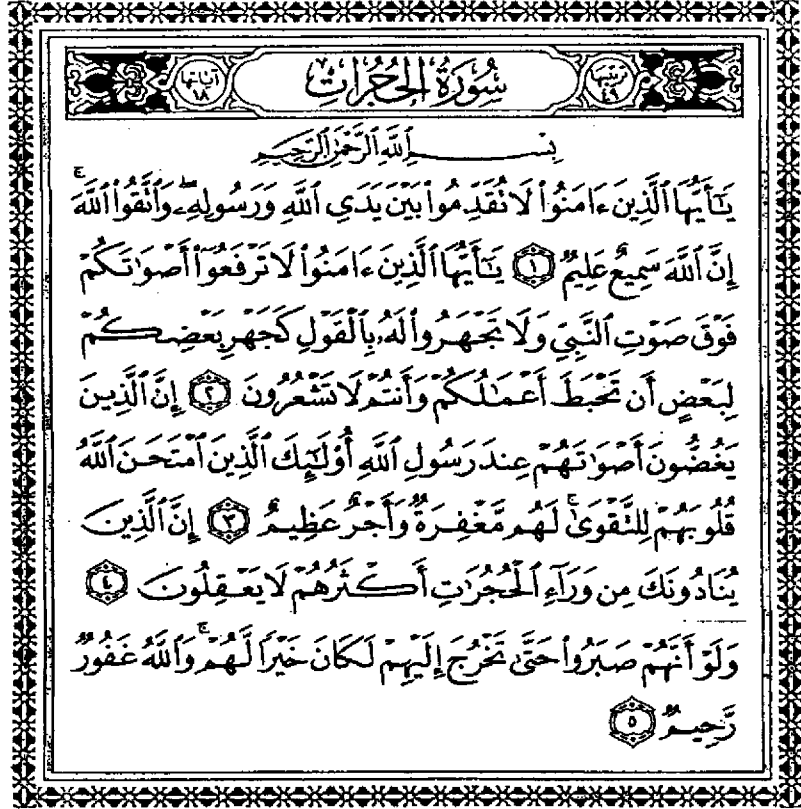 ترتيبها ٤٩ سُورَةُ الْحُجُرَاتِ آياتها ١٨
بِسْمِ ٱللَّهِ ٱلرَّحْمَٰنِ ٱلرَّحِيمِ
يَٰٓأَيُّهَا ٱلَّذِينَ ءَامَنُوا۟ لَا تُقَدِّمُوا۟ بَيْنَ يَدَىِ ٱللَّهِ وَرَسُولِهِۦ ۖ وَٱتَّقُوا۟ ٱللَّهَ ۚ
إِنَّ ٱللَّهَ سَمِيعٌ عَلِيمٌ ١ يَٰٓأَيُّهَا ٱلَّذِينَ ءَامَنُوا۟ لَا تَرْفَعُوٓا۟ أَصْوَٰتَكُمْ
فَوْقَ صَوْتِ ٱلنَّبِىِّ وَلَا تَجْهَرُوا۟ لَهُۥ بِٱلْقَوْلِ كَجَهْرِ بَعْضِكُمْ
لِبَعْضٍ أَن تَحْبَطَ أَعْمَٰلُكُمْ وَأَنتُمْ لَا تَشْعُرُونَ ٢ إِنَّ ٱلَّذِينَ
يَغُضُّونَ أَصْوَٰتَهُمْ عِندَ رَسُولِ ٱللَّهِ أُو۟لَٰٓئِكَ ٱلَّذِينَ ٱمْتَحَنَ ٱللَّهُ
قُلُوبَهُمْ لِلتَّقْوَىٰ ۚ لَهُم مَّغْفِرَةٌ وَأَجْرٌ عَظِيمٌ ٣ إِنَّ ٱلَّذِينَ
يُنَادُونَكَ مِن وَرَآءِ ٱلْحُجُرَٰتِ أَكْثَرُهُمْ لَا يَعْقِلُونَ ٤
وَلَوْ أَنَّهُمْ صَبَرُوا۟ حَتَّىٰ تَخْرُجَ إِلَيْهِمْ لَكَانَ خَيْرًا لَّهُمْ ۚ وَٱللَّهُ غَفُورٌ
رَّحِيمٌ ٥